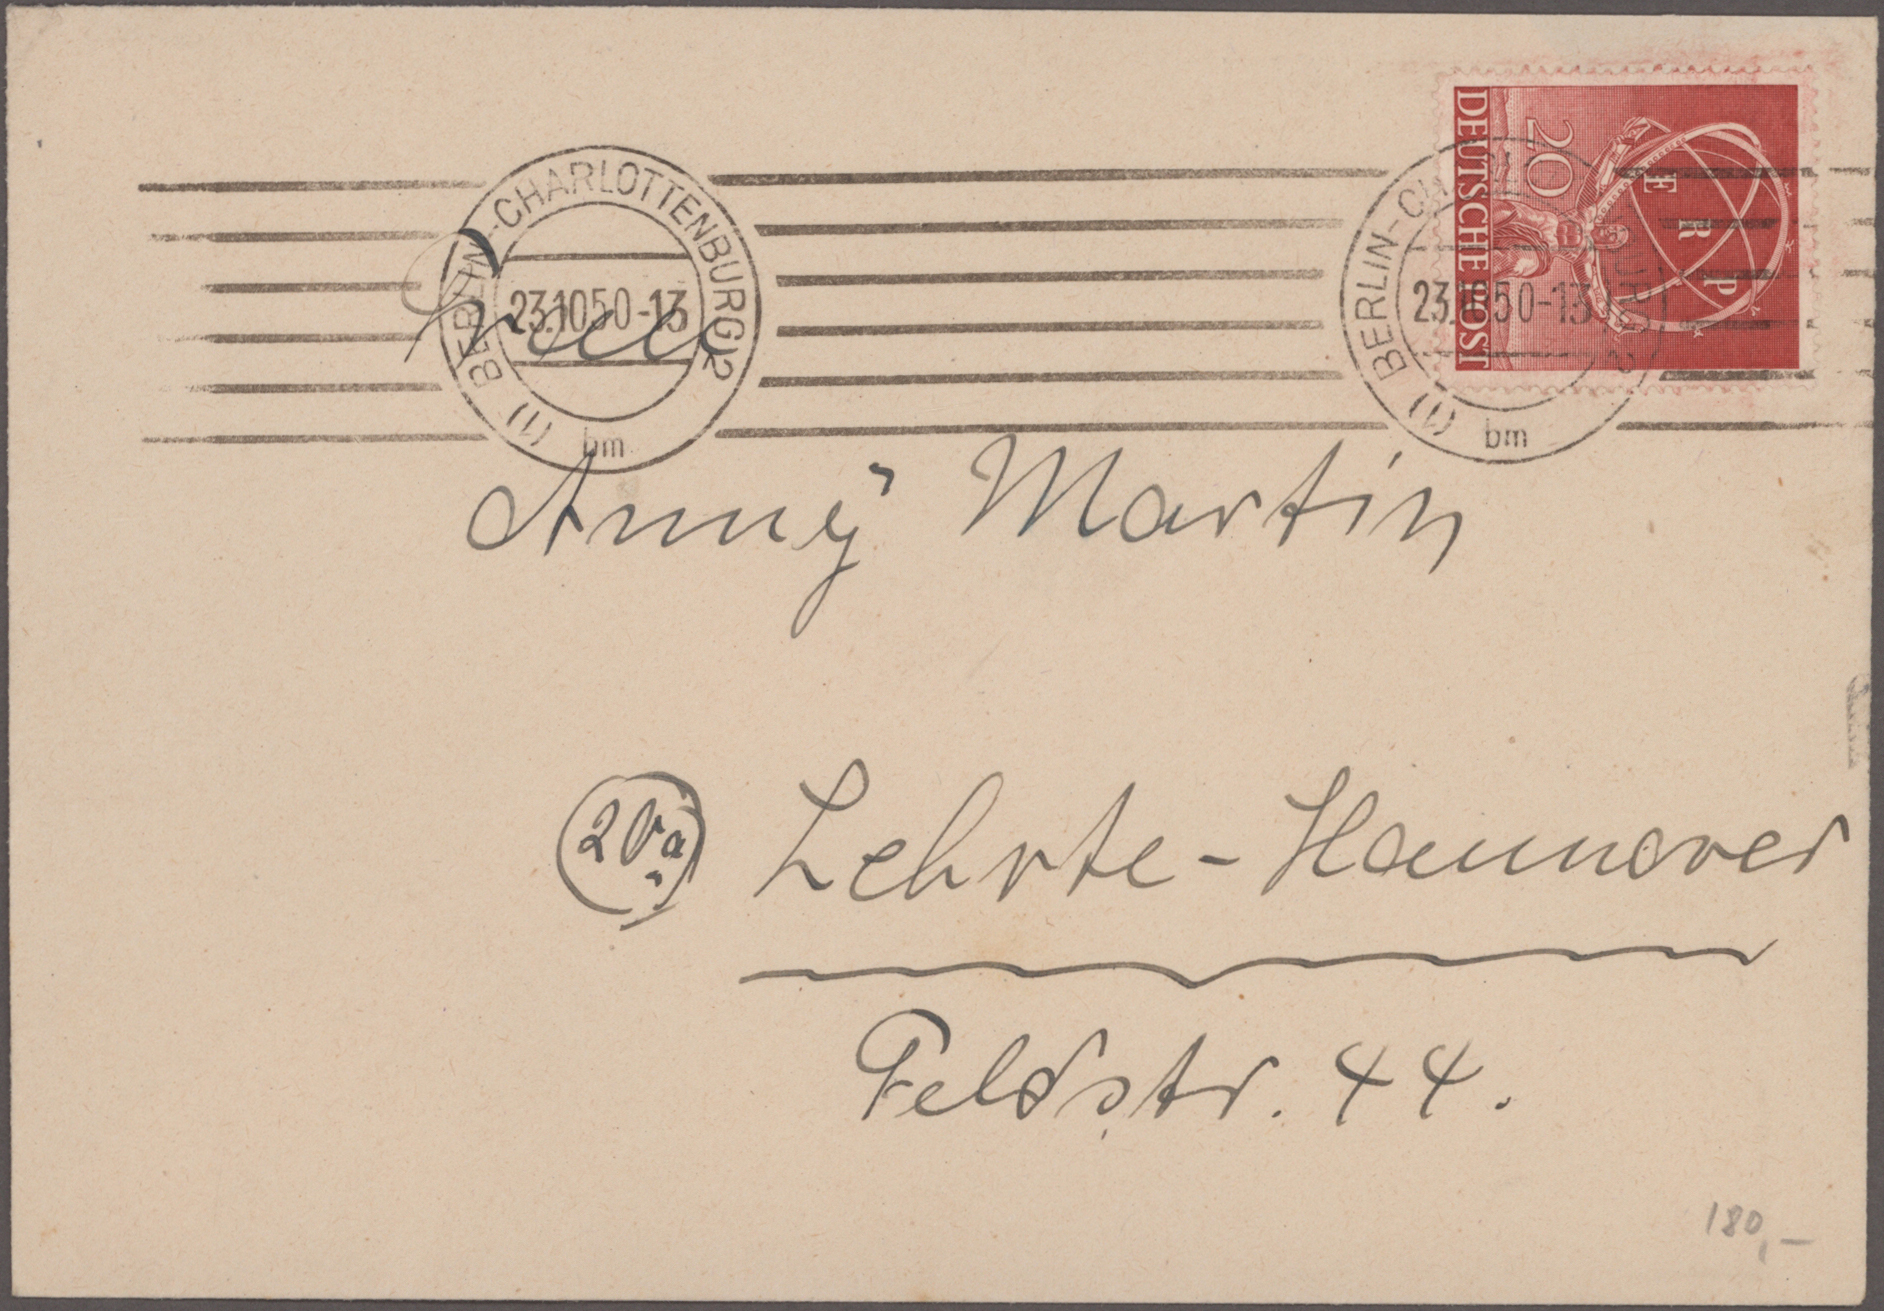 BERLIN-CHARLOTTENBURG 2
23.10.50-13
(1)
bm
DEUTSCHE POST
20
ERP
BERLIN-CH
23.10.50-13
(1)
bm
Frau
Anny Martin
20a Lehrte-Hannover
Feldstr. 44.
180,-